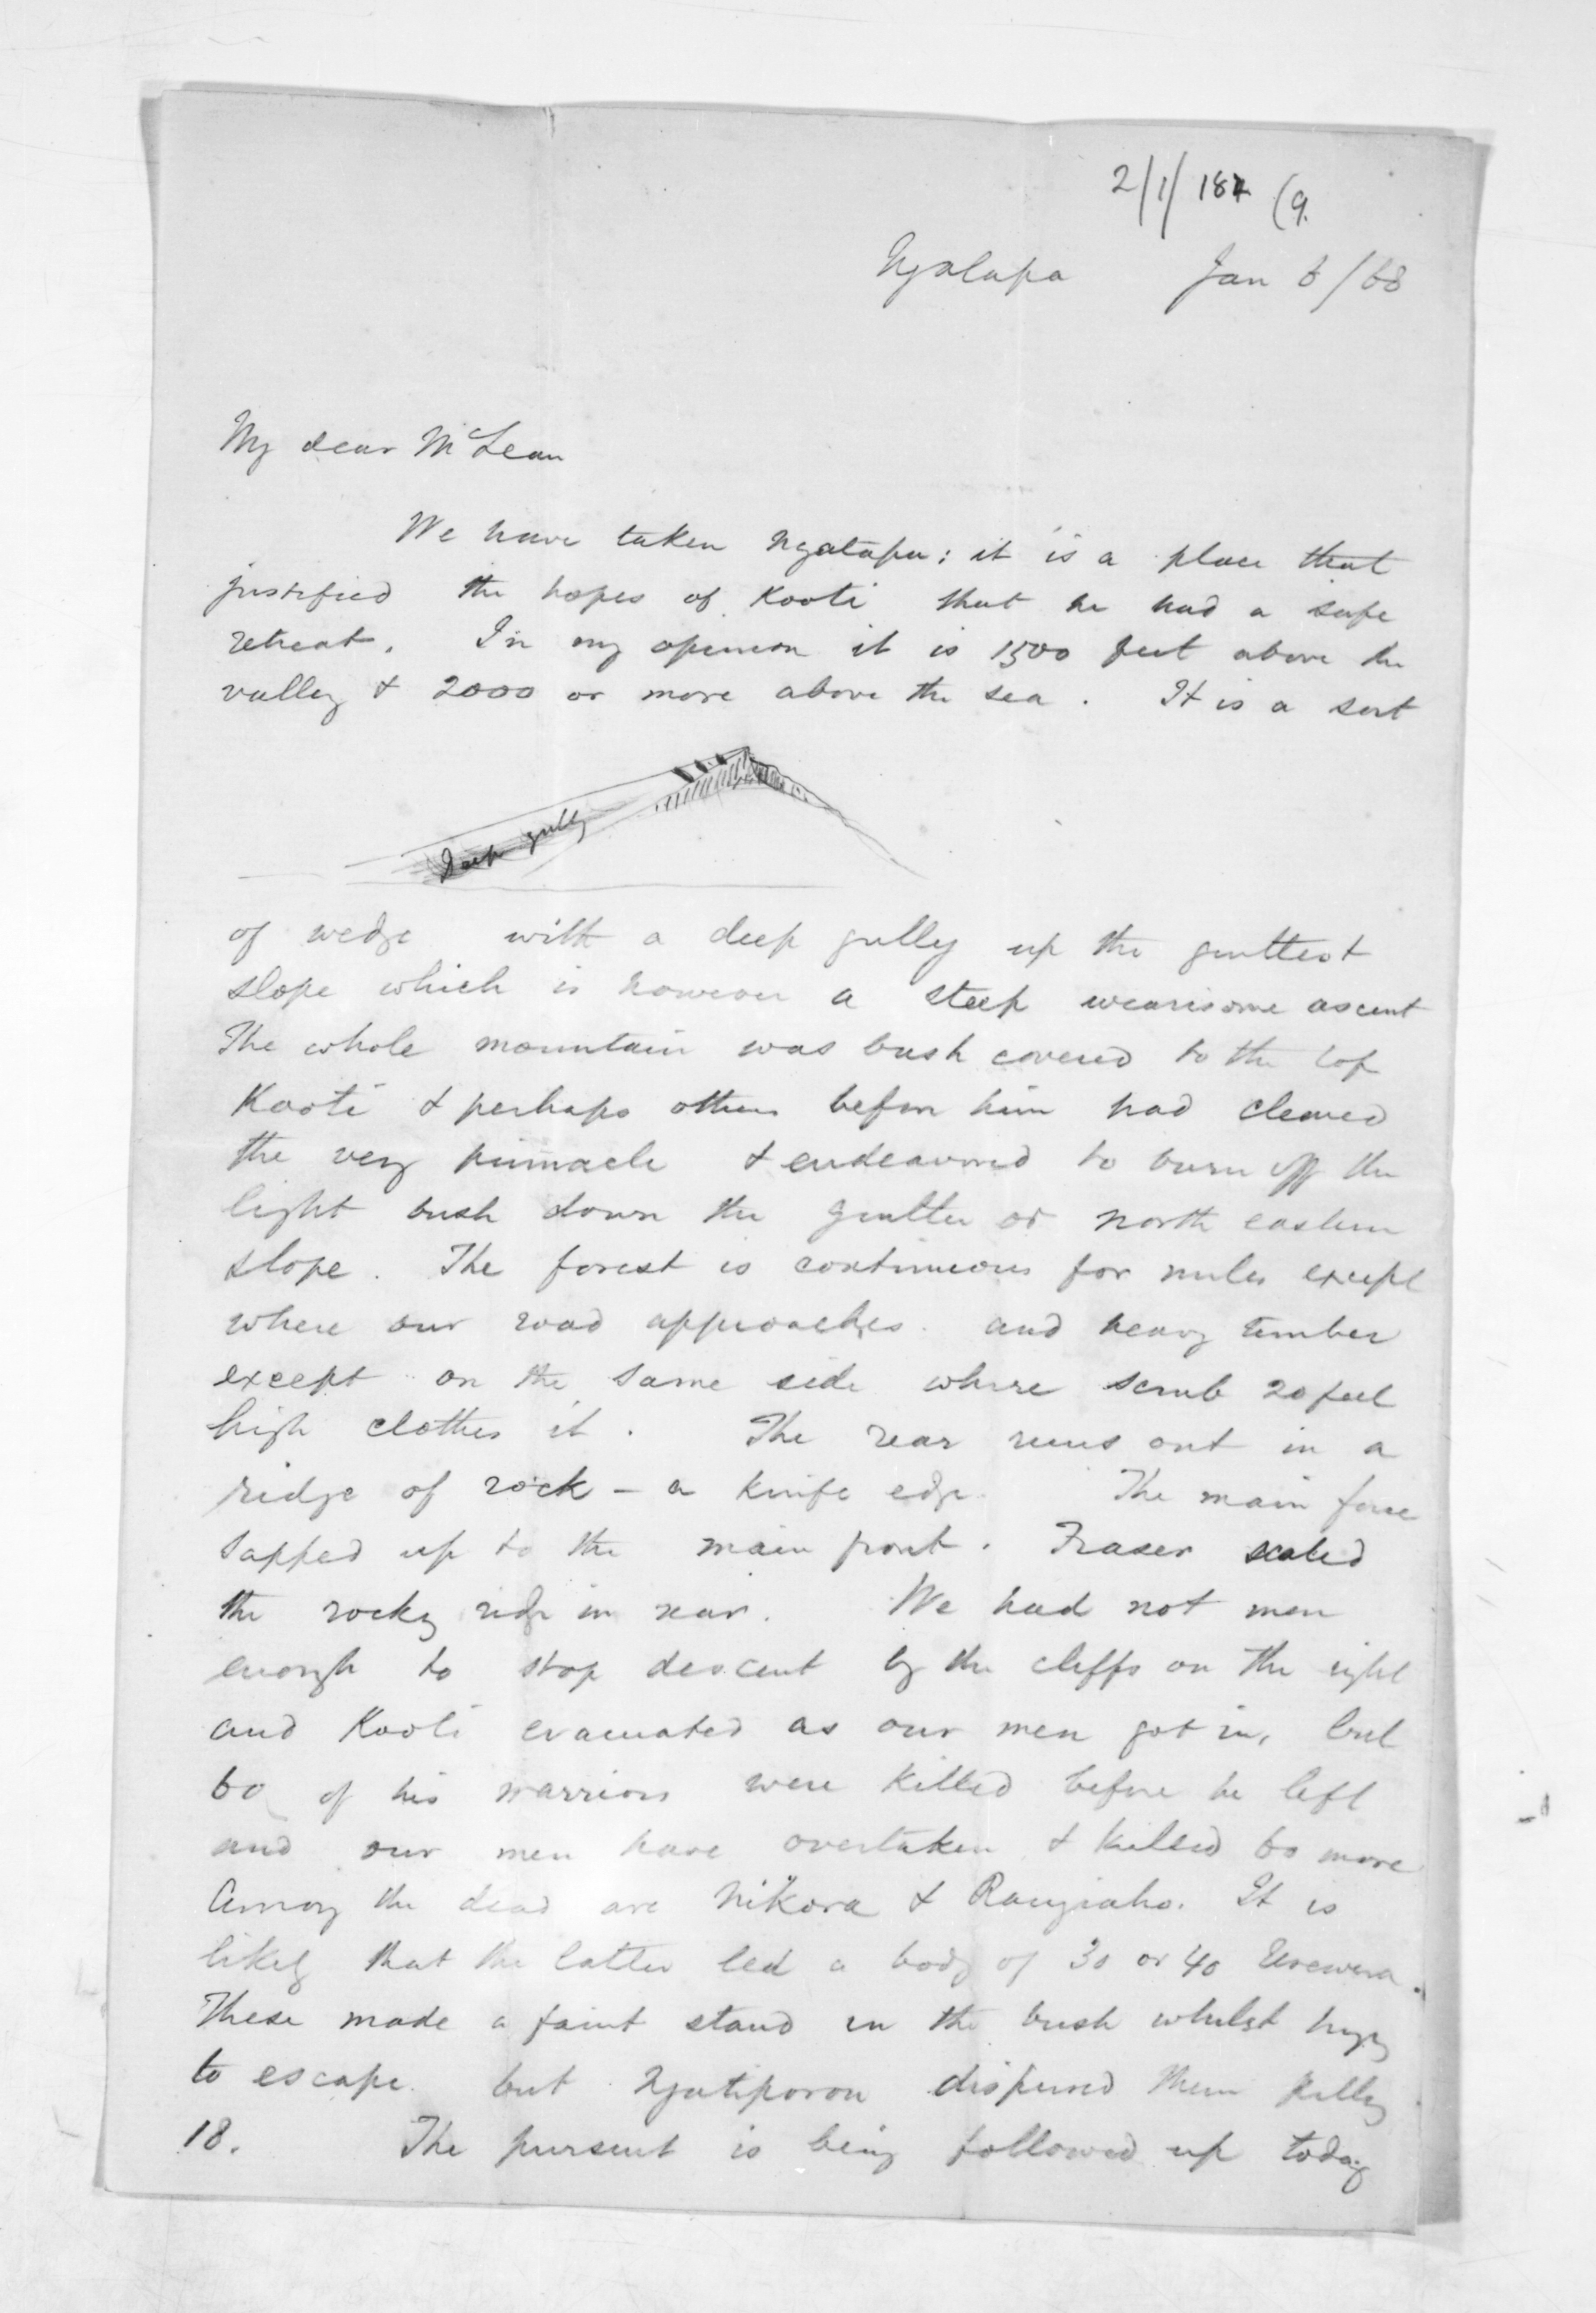 2/1/187 (9.
Ngatapa Jan 6/68
My dear McLean
We have taken Ngatapa; it is a place that
justified the hopes of Kooti that he had a safe
retreat. In my opinion it is 1500 feet above the
valley & 2000 or more above the sea. It is a sort
Deep gully
of wedge with a deep gully up the gentlest
slope which is however a steep wearisome ascent
The whole mountain was bush covered to the top
Kooti & perhaps others before him had cleared
the very pinnacle & endeavored to burn off the
light bush down the gentler or north eastern
slope. The forest is continuous for miles except
where our road approaches. and heavy timber
except on the same side where scrub 20 feet
high clothes it. The rear runs out in a
ridge of rock - a knife edge. The main force
sapped up to the main front. Fraser scaled
the rocky ridge in rear. We had not men
enough to stop descent by the cliffs on the right
and Kooti evacuated as our men got in, but
60 of his warriors were killed before he left
and our men have overtaken & killed 60 more
Among the dead are Nikora & Rangiaho. It is
likely that the latter led a body of 30 or 40 Urewera.
These made a faint stand in the bush whilst trying
to escape. but Ngatiporou dispersed them killing
18. The pursuit is being followed up today